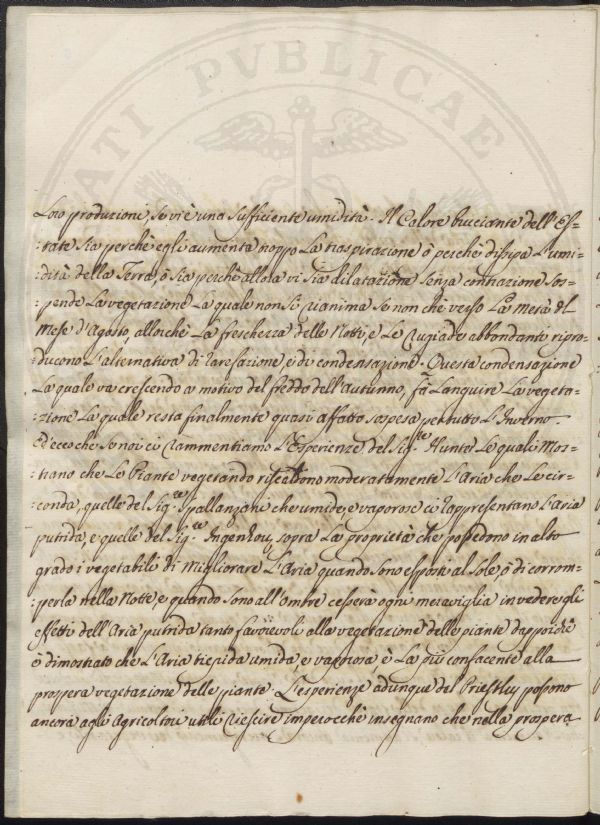 ATI PVBLICAE
Loro produzioni, se vi è una sufficiente umidità. Il Calore bruciante dell'Es-
:tate sia perchè egli aumenta troppo La traspirazione ò perchè dissipa L'umi-
:dità della Terra, ò sia perchè allora vi sia dilatazione senza contrazione sos-
:pende La vegetazione La quale non si rianima se non che verso La metà del
Mese d'Agosto, allorchè La freschezza delle Notti, e Le Rugiade abbondanti ripro-
:ducono L'alternativa di rarefazione, e di condensazione. Questa condensazione
La quale va crescendo a motivo del freddo dell'Autunno, fà Languire La vegeta-
:zione La quale resta finalmente quasi affatto sospesa per tutto L'Inverno.
Ed ecco che se noi ci rammentiamo L'Esperienze del Sig.re Hunte Le quali Mos-
:trano che Le Piante vegetando riscaldono moderatamente L'Aria che Le cir-
:conda, quelle del Sig.re Spallanzani che umide, e vaporose ci rappresentano L'aria
putrida, e quelle del Sig.re Ingenhouz sopra La proprietà che possedono in alto
grado i vegetabili di Migliorare L'Aria quando sono esposti al Sole, ò di corrom-
:perla nella Notte, e quando sono all'ombre cesserà ogni meraviglia in vedere gli
effetti dell'Aria putrida tanto favorevoli alla vegetazione delle piante dappoichè
è dimostrato che L'Aria tiepida umida, e vaporosa è La più confacente alla
prospera vegetazione delle piante. L'esperienze adunque del Priestley possono
ancora agli Agricoltori utili riescire imperocchè insegnano che nella prospera